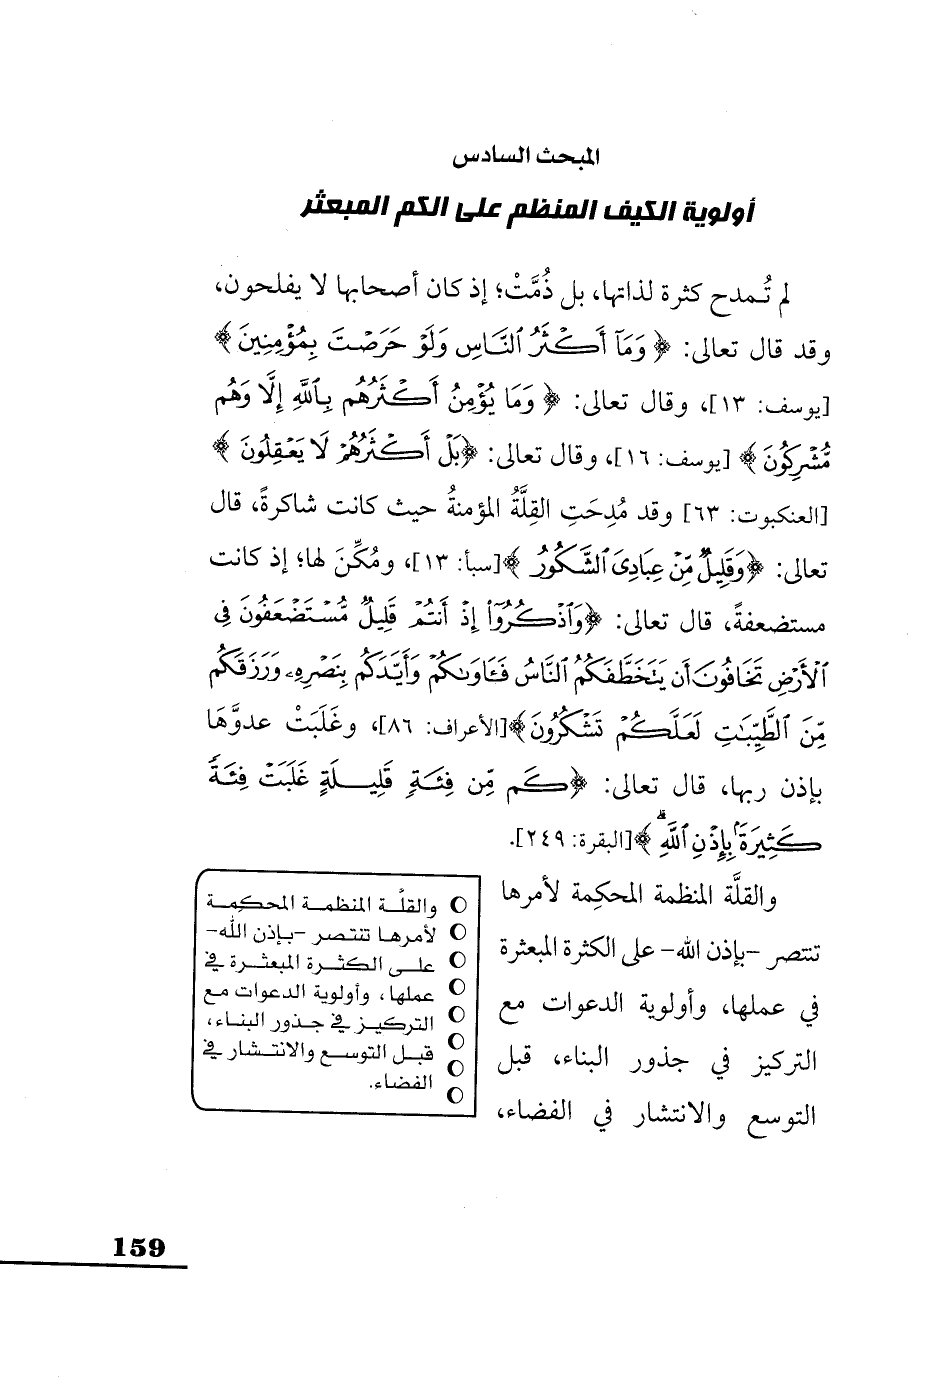 المبحث السادس
أولوية الكيف المنظم على الكم المبعثر
لم تُمدح كثرة لذاتها، بل ذُمَّتْ؛ إذ كان أصحابها لا يفلحون،
وقد قال تعالى: ﴿وَمَآ أَكْثَرُ ٱلنَّاسِ وَلَوْ حَرَصْتَ بِمُؤْمِنِينَ﴾
[يوسف: ١٣]، وقال تعالى: ﴿وَمَا يُؤْمِنُ أَكْثَرُهُم بِٱللَّهِ إِلَّا وَهُم
مُّشْرِكُونَ﴾ [يوسف: ١٦]، وقال تعالى: ﴿بَلْ أَكْثَرُهُمْ لَا يَعْقِلُونَ﴾
[العنكبوت: ٦٣] وقد مُدِحَتِ القِلَّةُ المؤمنةُ حيث كانت شاكرةً، قال
تعالى: ﴿وَقَلِيلٌ مِّنْ عِبَادِيَ ٱلشَّكُورُ﴾[سبأ: ١٣]، ومُكِّنَ لها؛ إذ كانت
مستضعفةً، قال تعالى: ﴿وَٱذْكُرُوٓا۟ إِذْ أَنتُمْ قَلِيلٌ مُّسْتَضْعَفُونَ فِى
ٱلْأَرْضِ تَخَافُونَ أَن يَتَخَطَّفَكُمُ ٱلنَّاسُ فَـَٔاوَىٰكُمْ وَأَيَّدَكُم بِنَصْرِهِۦ وَرَزَقَكُم
مِّنَ ٱلطَّيِّبَـٰتِ لَعَلَّكُمْ تَشْكُرُونَ﴾[الأعراف: ٨٦]، وغَلَبَتْ عدوَّهَا
بإذن ربها، قال تعالى: ﴿كَم مِّن فِئَةٍ قَلِيلَةٍ غَلَبَتْ فِئَةً
كَثِيرَةًۢ بِإِذْنِ ٱللَّهِ ۗ﴾[البقرة: ٢٤٩].
والقلَّة المنظمة المحكِمة لأمرها
تنتصر -بإذن الله- على الكثرة المبعثرة
في عملها، وأولوية الدعوات مع
التركيز في جذور البناء، قبل
التوسع والانتشار في الفضاء،
والقلَّة المنظمة المحكِمة
لأمرها تنتصر -بإذن الله-
على الكثرة المبعثرة في
عملها، وأولوية الدعوات مع
التركيز في جذور البناء،
قبل التوسع والانتشار في
الفضاء.
159